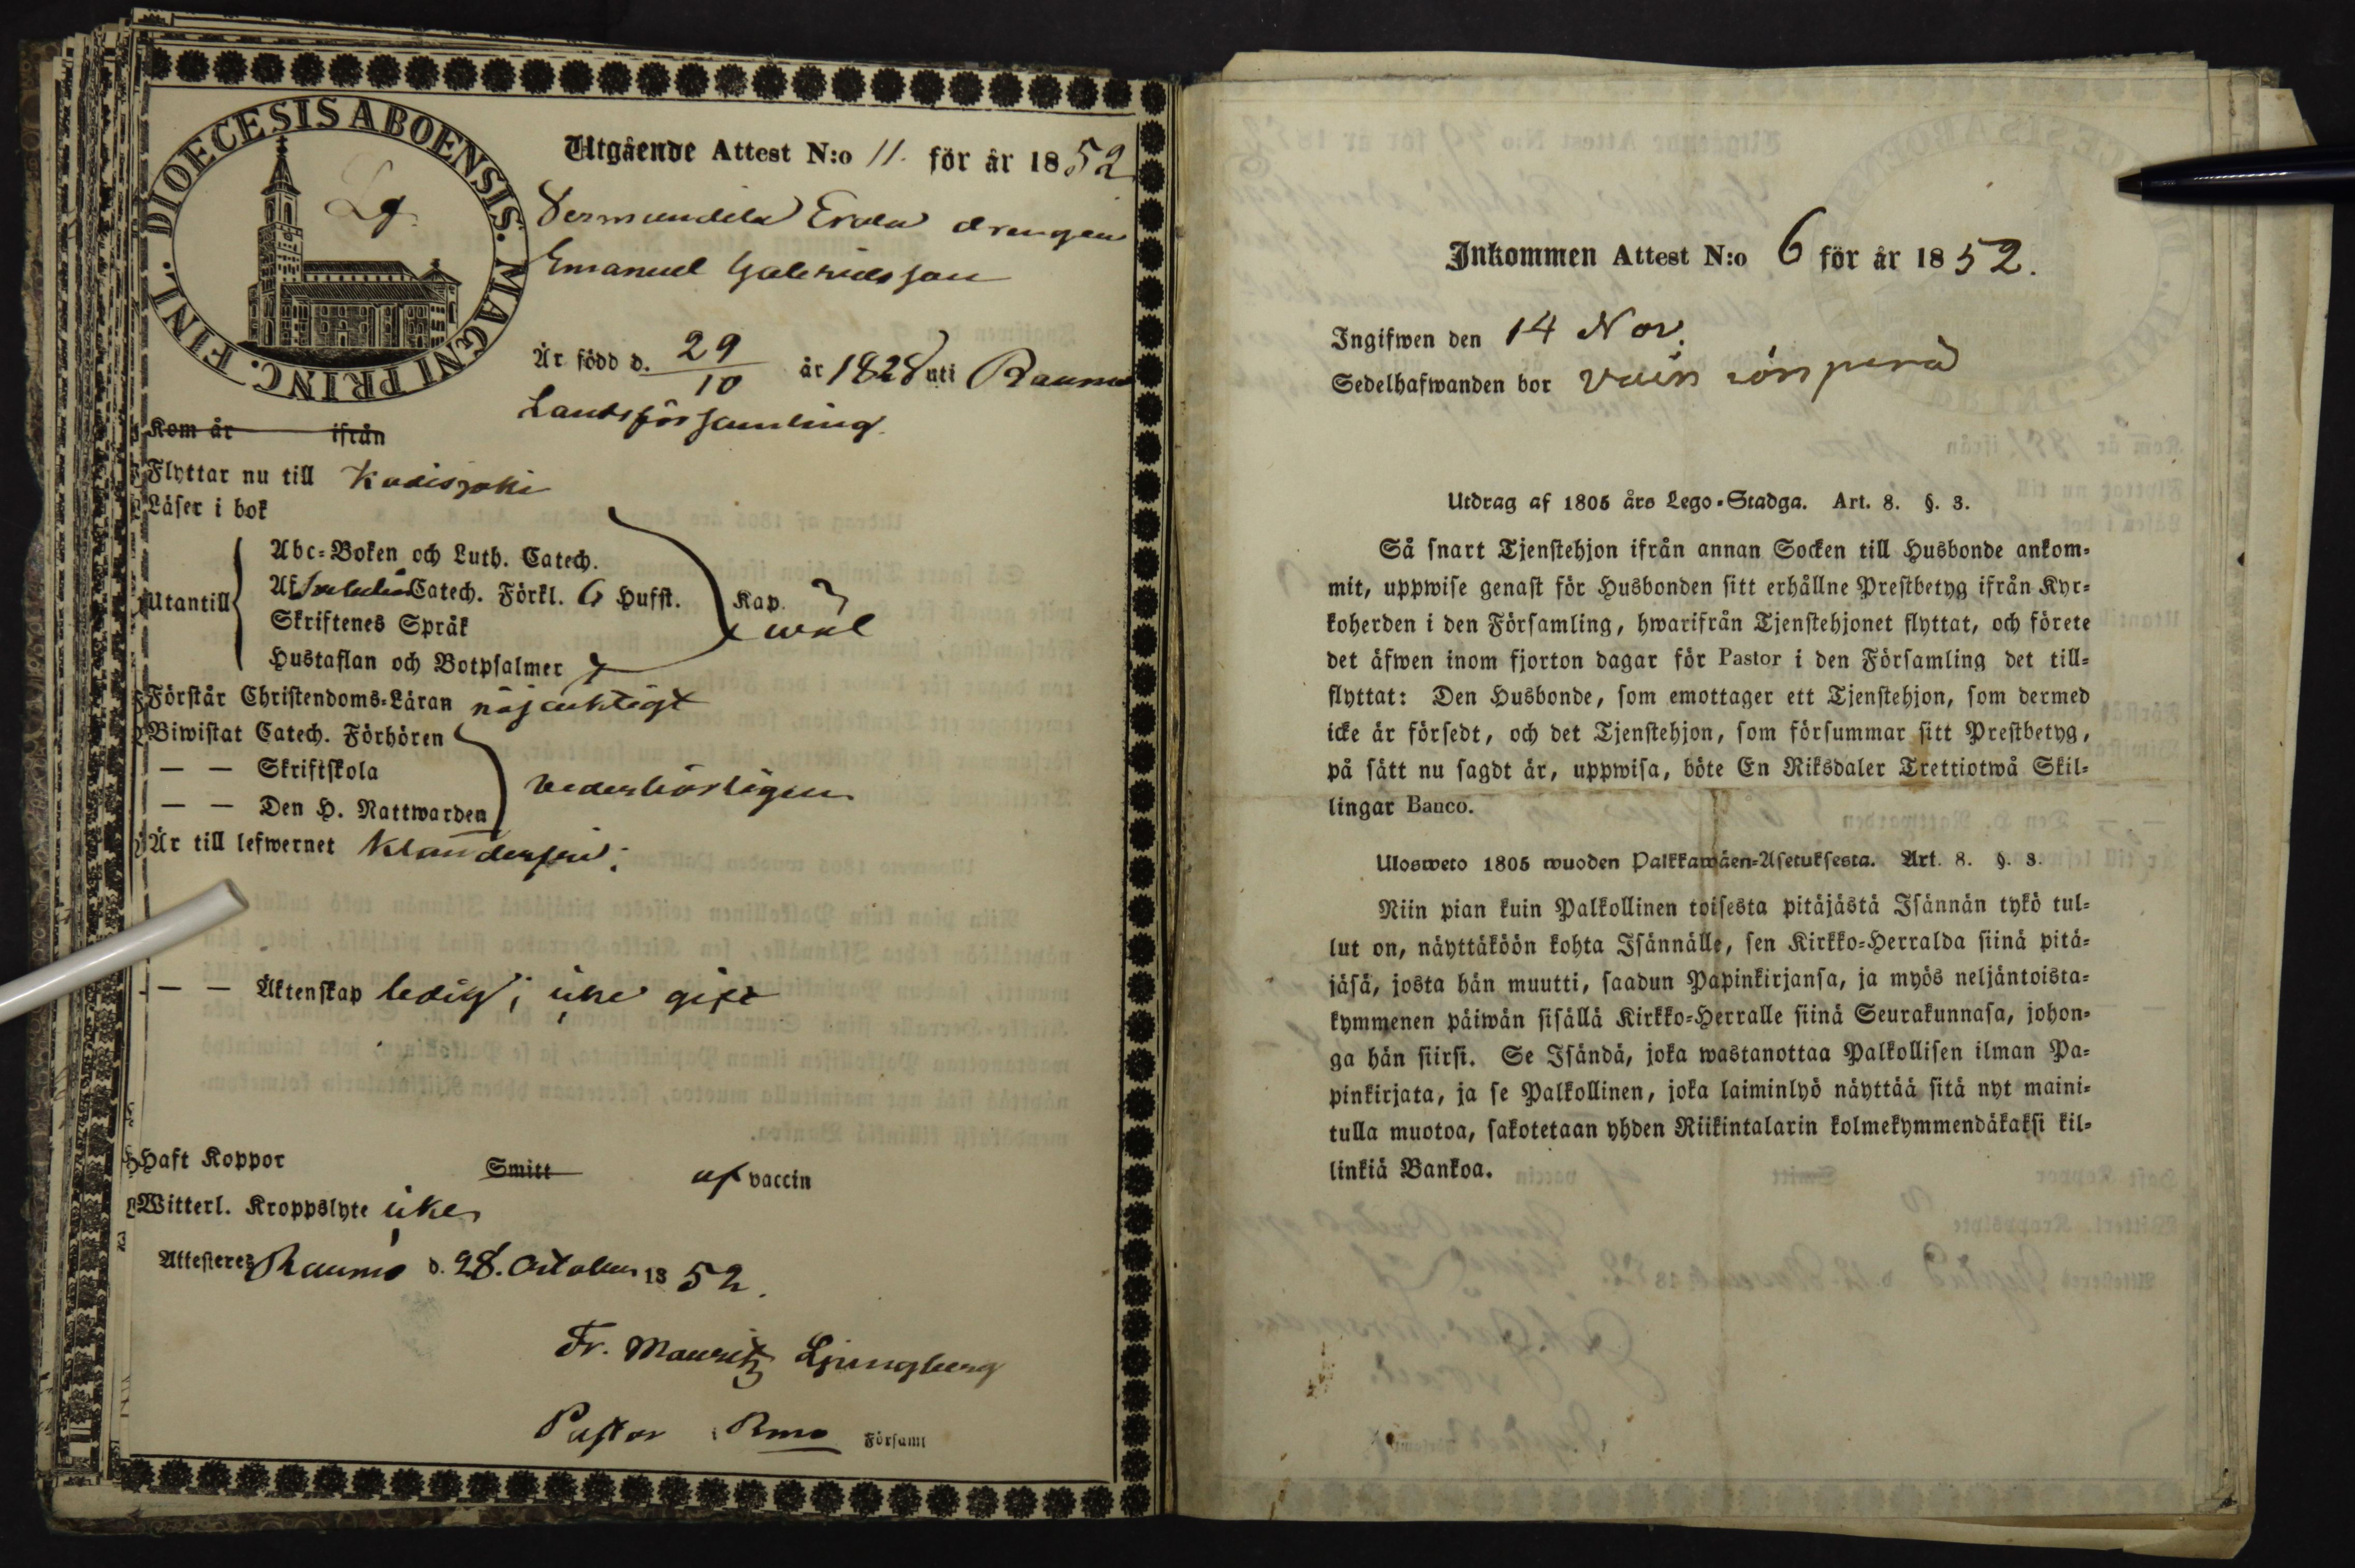 DIOECESIS ABOENSIS. MAGNI PRINC. FINL.
Utgående Attest N:o 11. för år 1852
Vermundila Erola drengen
Emanuel Gabrielsson
Är född d. 29/10 år 1828 uti Raumo
Landsförsamling.
Kom år ifrån
Flyttar nu till Kodisjoki
Läser i bok
Utantill
Abc-Boken och Luth. Catech.
Af Catech. Förkl. 6 Hufst. Kap. 3
Skriftenes Språk wäl
Hustaflan och Botpsalmer
Förstår Christendoms-Läran nöjaktigt
Biwistat Catech. Förhören
— — Skriftskola
— — Den H. Nattwarden
vederbörligen
Är till lefwernet klanderfri.
— — Äktenskap ledig; icke gift
Haft Koppor Smitt af vaccin
Witterl. Kroppslyte icke
Attesteres Raumo d. 28. October 1852.
Fr. Mauritz Ljungberg
Pastor i Rmo Församl
Inkommen Attest N:o 6 för år 1852.
Ingifwen den 14 Nov.
Sedelhafwanden bor
Utdrag af 1805 års Lego-Stadga. Art. 8. §. 3.
Så snart Tjenstehjon ifrån annan Socken till Husbonde ankom-
mit, uppwise genast för Husbonden sitt erhållne Prestbetyg ifrån Kyr-
koherden i den Församling, hwarifrån Tjenstehjonet flyttat, och förete
det äfwen inom fjorton dagar för Pastor i den Församling det till-
flyttat: Den Husbonde, som emottager ett Tjenstehjon, som dermed
icke är försedt, och det Tjenstehjon, som försummar sitt Prestbetyg,
på sätt nu sagdt är, uppwisa, böte En Riksdaler Trettiotwå Skil-
lingar Banco.
Ulosweto 1805 wuoden Palkkawäen-Asetuksesta. Art. 8. §. 3.
Niin pian kuin Palkollinen toisesta pitäjästä Isännän tykö tul-
lut on, näyttäköön kohta Isännälle, sen Kirkko-Herralda siinä pitä-
jäsä, josta hän muutti, saadun Papinkirjansa, ja myös neljäntoista-
kymmenen päiwän sisällä Kirkko-Herralle siinä Seurakunnasa, johon-
ga hän siirsi. Se Isändä, joka wastanottaa Palkollisen ilman Pa-
pinkirjata, ja se Palkollinen, joka laiminlyö näyttää sitä nyt maini-
tulla muotoa, sakotetaan yhden Riikintalarin kolmekymmendäkaksi kil-
linkiä Bankoa.